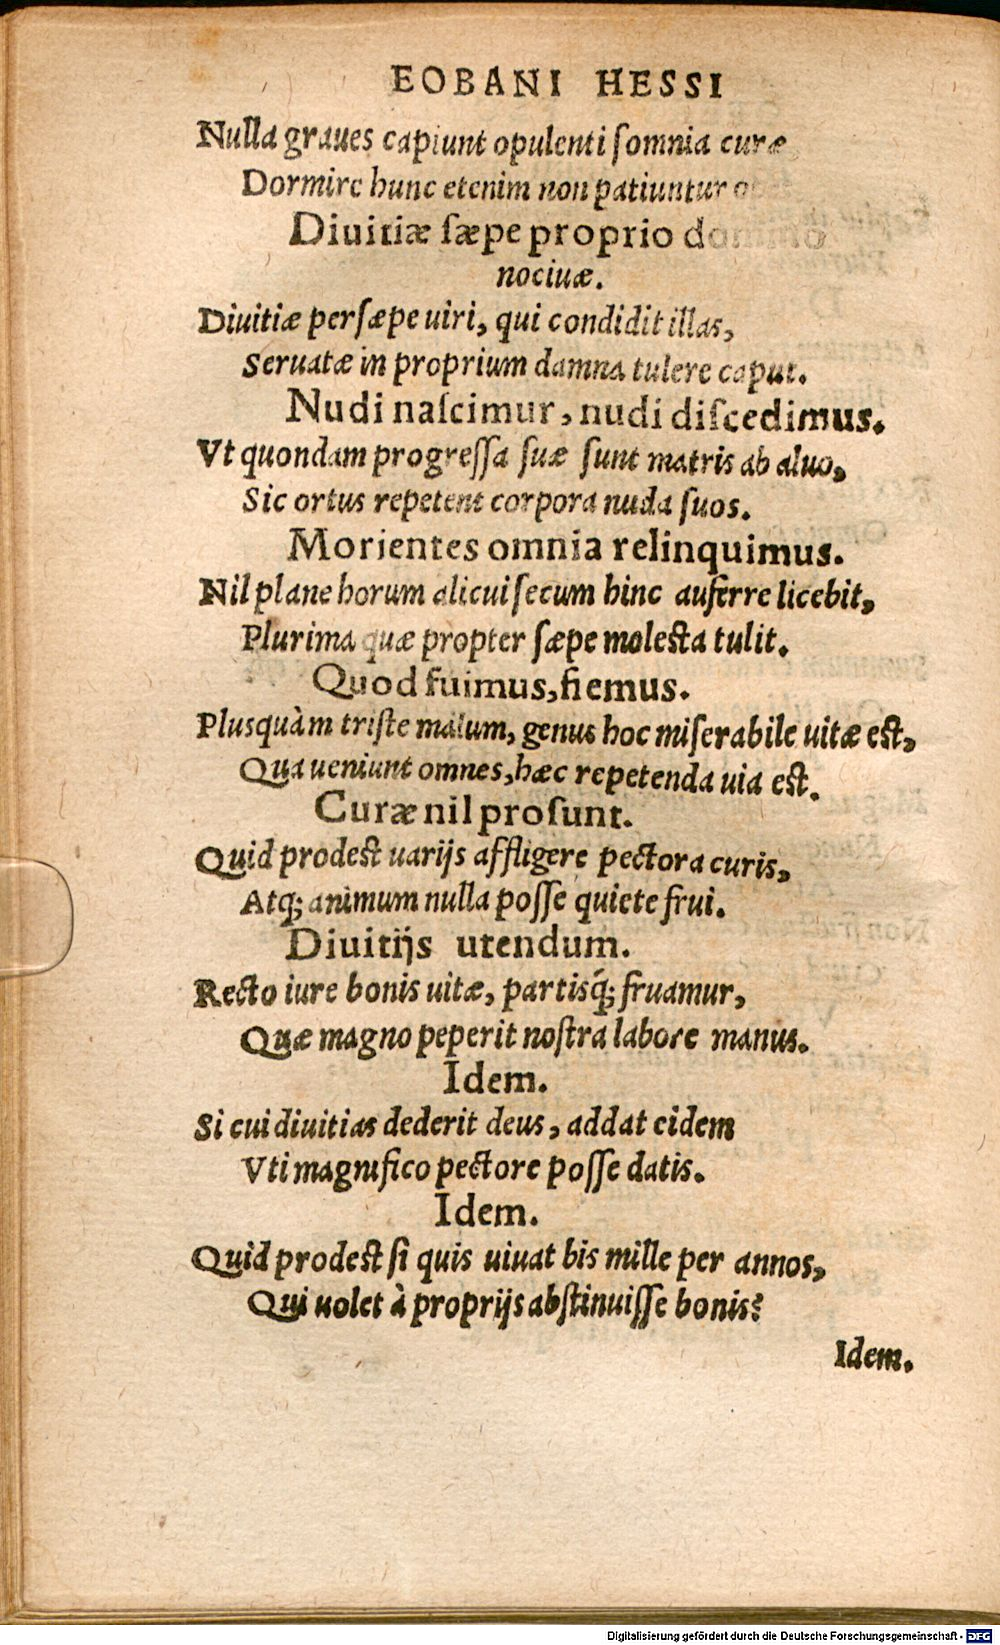 EOBANI HESSI
Nulla graues capiunt opulenti ſomnia curæ
Dormire hunc etenim non patiuntur
Diuitiæ ſæpe proprio domino
nociuæ.
Diuitiæ perſæpe uiri, qui condidit illas,
Seruatæ in proprium damna tulere caput.
Nudi naſcimur, nudi diſcedimus.
Vt quondam progreſſa ſuæ ſunt matris ab aluo,
Sic ortus repetent corpora nuda ſuos.
Morientes omnia relinquimus.
Nil plane horum alicui ſecum hinc auferre licebit,
Plurima quæ propter ſæpe molesta tulit.
Quod fuimus, fiemus.
Plusquàm triſte malum, genus hoc miſerabile uitæ est,
Qua ueniunt omnes, hæc repetenda uia est.
Curæ nil proſunt.
Quid prodest uarijs affligere pectora curis,
Atq; animum nulla poſſe quiete frui.
Diuitijs utendum.
Recto iure bonis uitæ, partisq́; fruamur,
Quæ magno peperit noſtra labore manus.
Idem.
Si cui diuitias dederit deus, addat eidem
Vti magnifico pectore poſſe datis.
Idem.
Quid prodest ſi quis uiuat bis mille per annos,
Qui uolet à proprijs abſtinuiſſe bonis?
Idem.
Digitalisierung gefördert durch die Deutsche Forschungsgemeinschaft - DFG